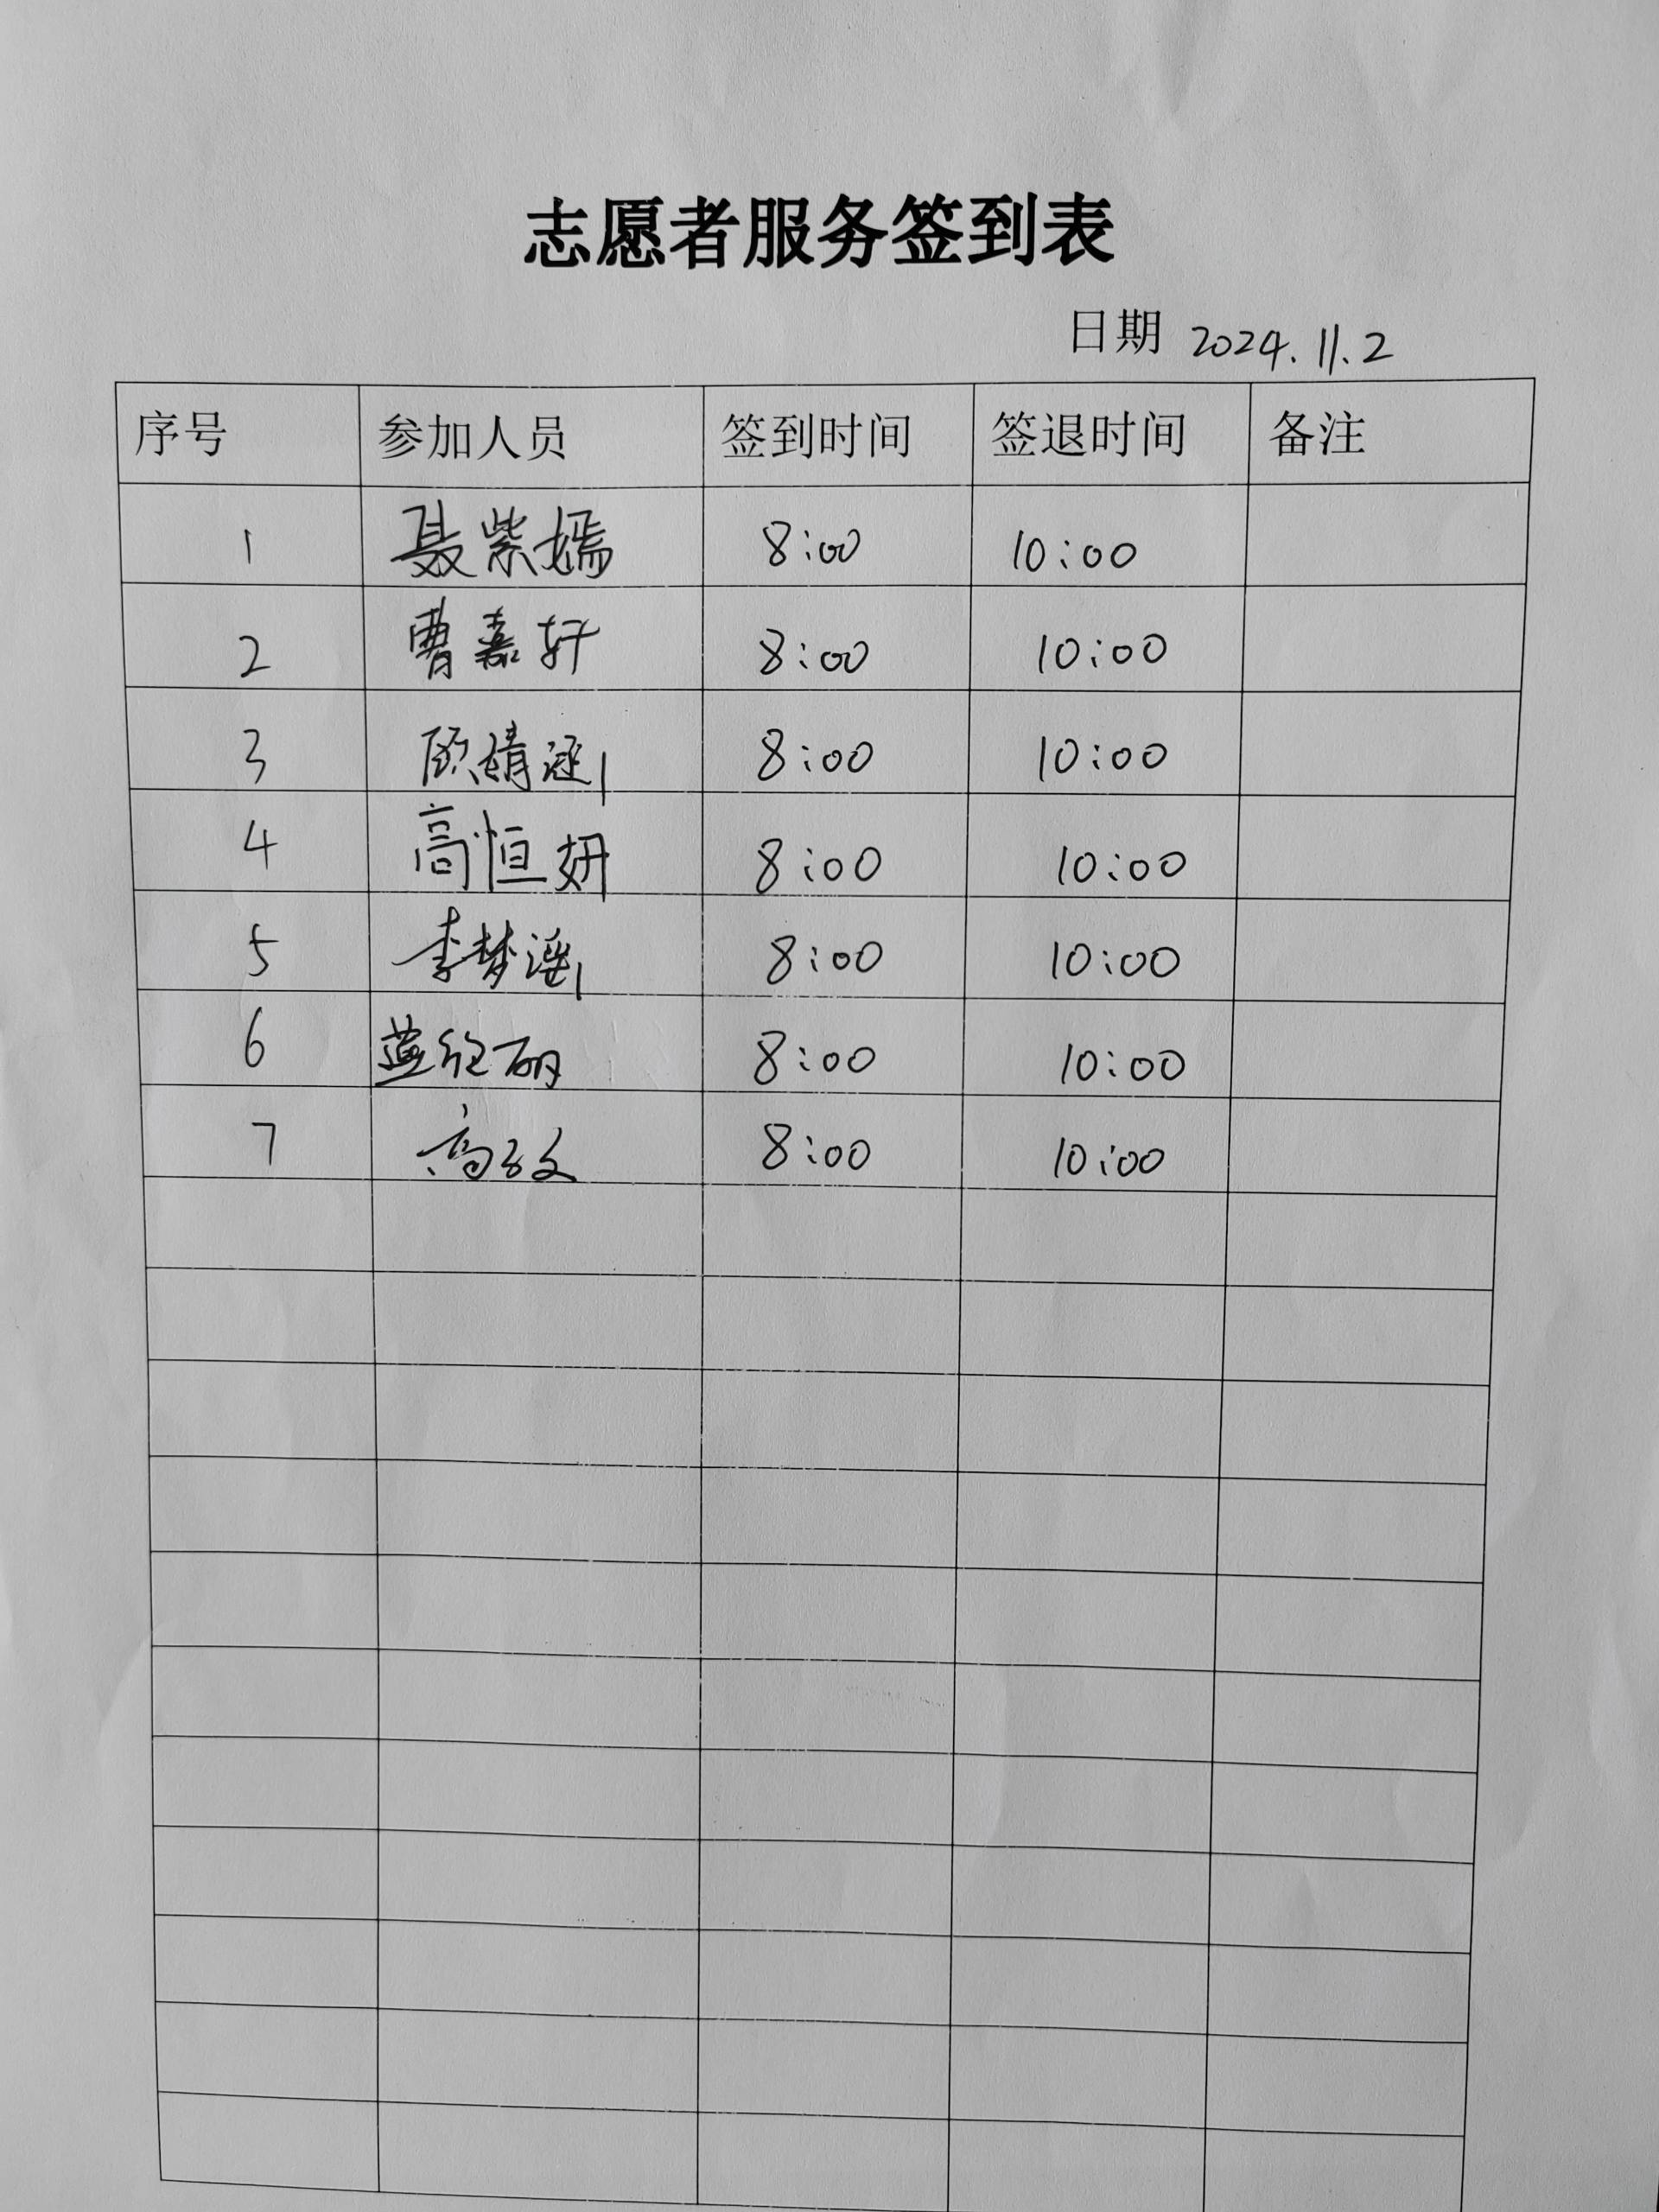 志愿者服务签到表
日期 2024.11.2
序号 参加人员 签到时间 签退时间 备注
1 聂紫嫣 8:00 10:00
2 曹嘉轩 8:00 10:00
3 顾婧涵 8:00 10:00
4 高恒妍 8:00 10:00
5 李梦瑶 8:00 10:00
6 8:00 10:00
7 8:00 10:00